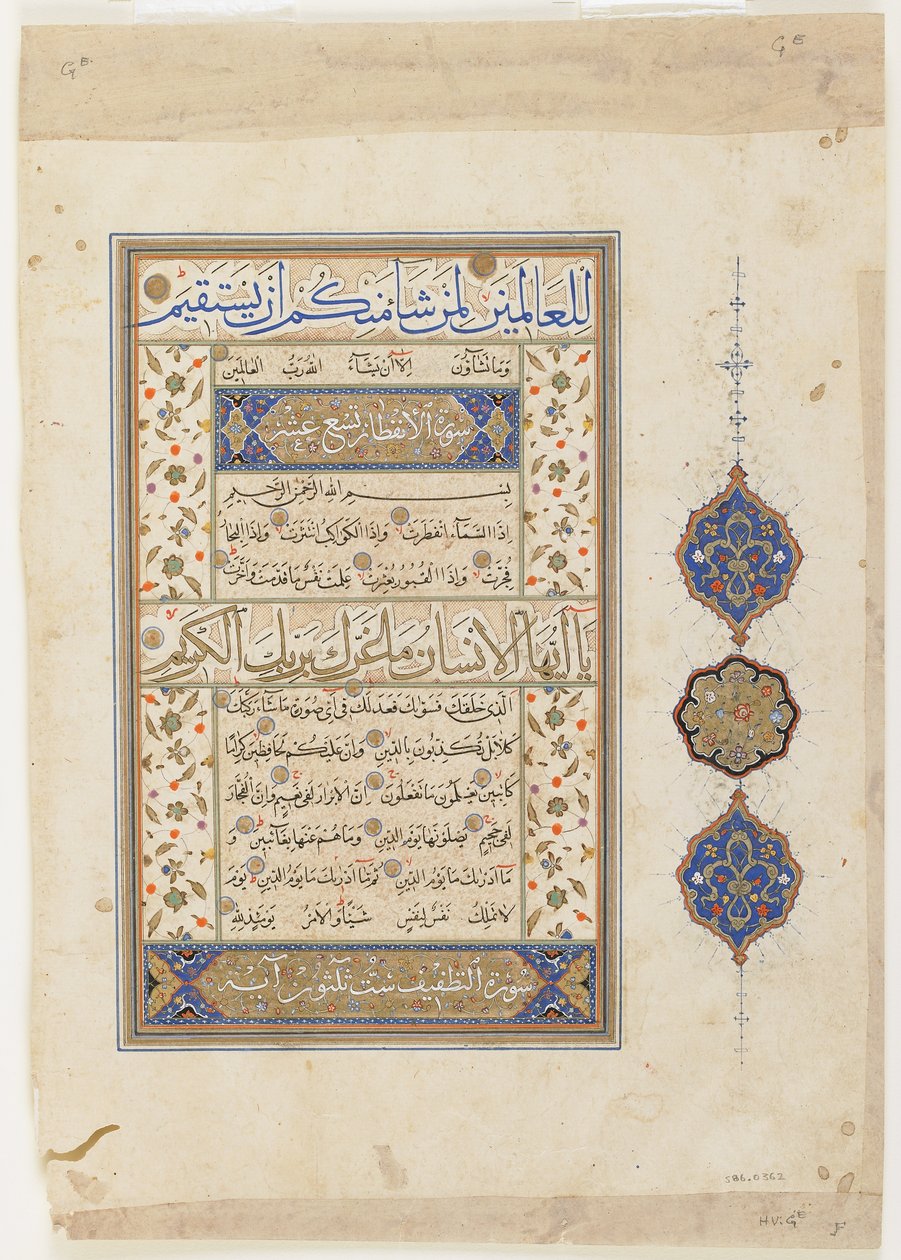 G E.
G E
لِلْعَالَمِينَ لِمَنْ شَآءَ مِنْكُمْ اَنْ يَسْتَقِيمَ
وَمَا تَشَآؤُنَ اِلَّا اَنْ يَشَآءَ اللهُ رَبُّ الْعَالَمِينَ
سورة الانفطار تسع عشر
بِسْمِ اللهِ الرَّحْمٰنِ الرَّحِيمِ
اِذَا السَّمَآءُ انْفَطَرَتْ وَاِذَا الْكَوَاكِبُ انْتَثَرَتْ وَاِذَا الْبِحَارُ
فُجِّرَتْ وَاِذَا الْقُبُورُ بُعْثِرَتْ عَلِمَتْ نَفْسٌ مَا قَدَّمَتْ وَاَخَّرَتْ
يَا اَيُّهَا الْاِنْسَانُ مَا غَرَّكَ بِرَبِّكَ الْكَرِيمِ
الَّذِى خَلَقَكَ فَسَوّٰيكَ فَعَدَلَكَ فِى اَىِّ صُورَةٍ مَاشَآءَ رَكَّبَكَ
كَلَّا بَلْ تُكَذِّبُونَ بِالدِّينِ وَاِنَّ عَلَيْكُمْ لَحَافِظِينَ كِرَامًا
كَاتِبِينَ يَعْلَمُونَ مَا تَفْعَلُونَ اِنَّ الْاَبْرَارَ لَفِى نَعِيمٍ وَاِنَّ الْفُجَّارَ
لَفِى جَحِيمٍ يَصْلَوْنَهَا يَوْمَ الدِّينِ وَمَا هُمْ عَنْهَا بِغَآئِبِينَ وَ
مَا اَدْرٰيكَ مَا يَوْمُ الدِّينِ ثُمَّ مَا اَدْرٰيكَ مَا يَوْمُ الدِّينِ يَوْمَ
لَا تَمْلِكُ نَفْسٌ لِنَفْسٍ شَيْئًا وَالْاَمْرُ يَوْمَئِذٍ لِلّٰهِ
سورة التطفيف ست ثلثون آية
S86.0362
H.V: G E
F